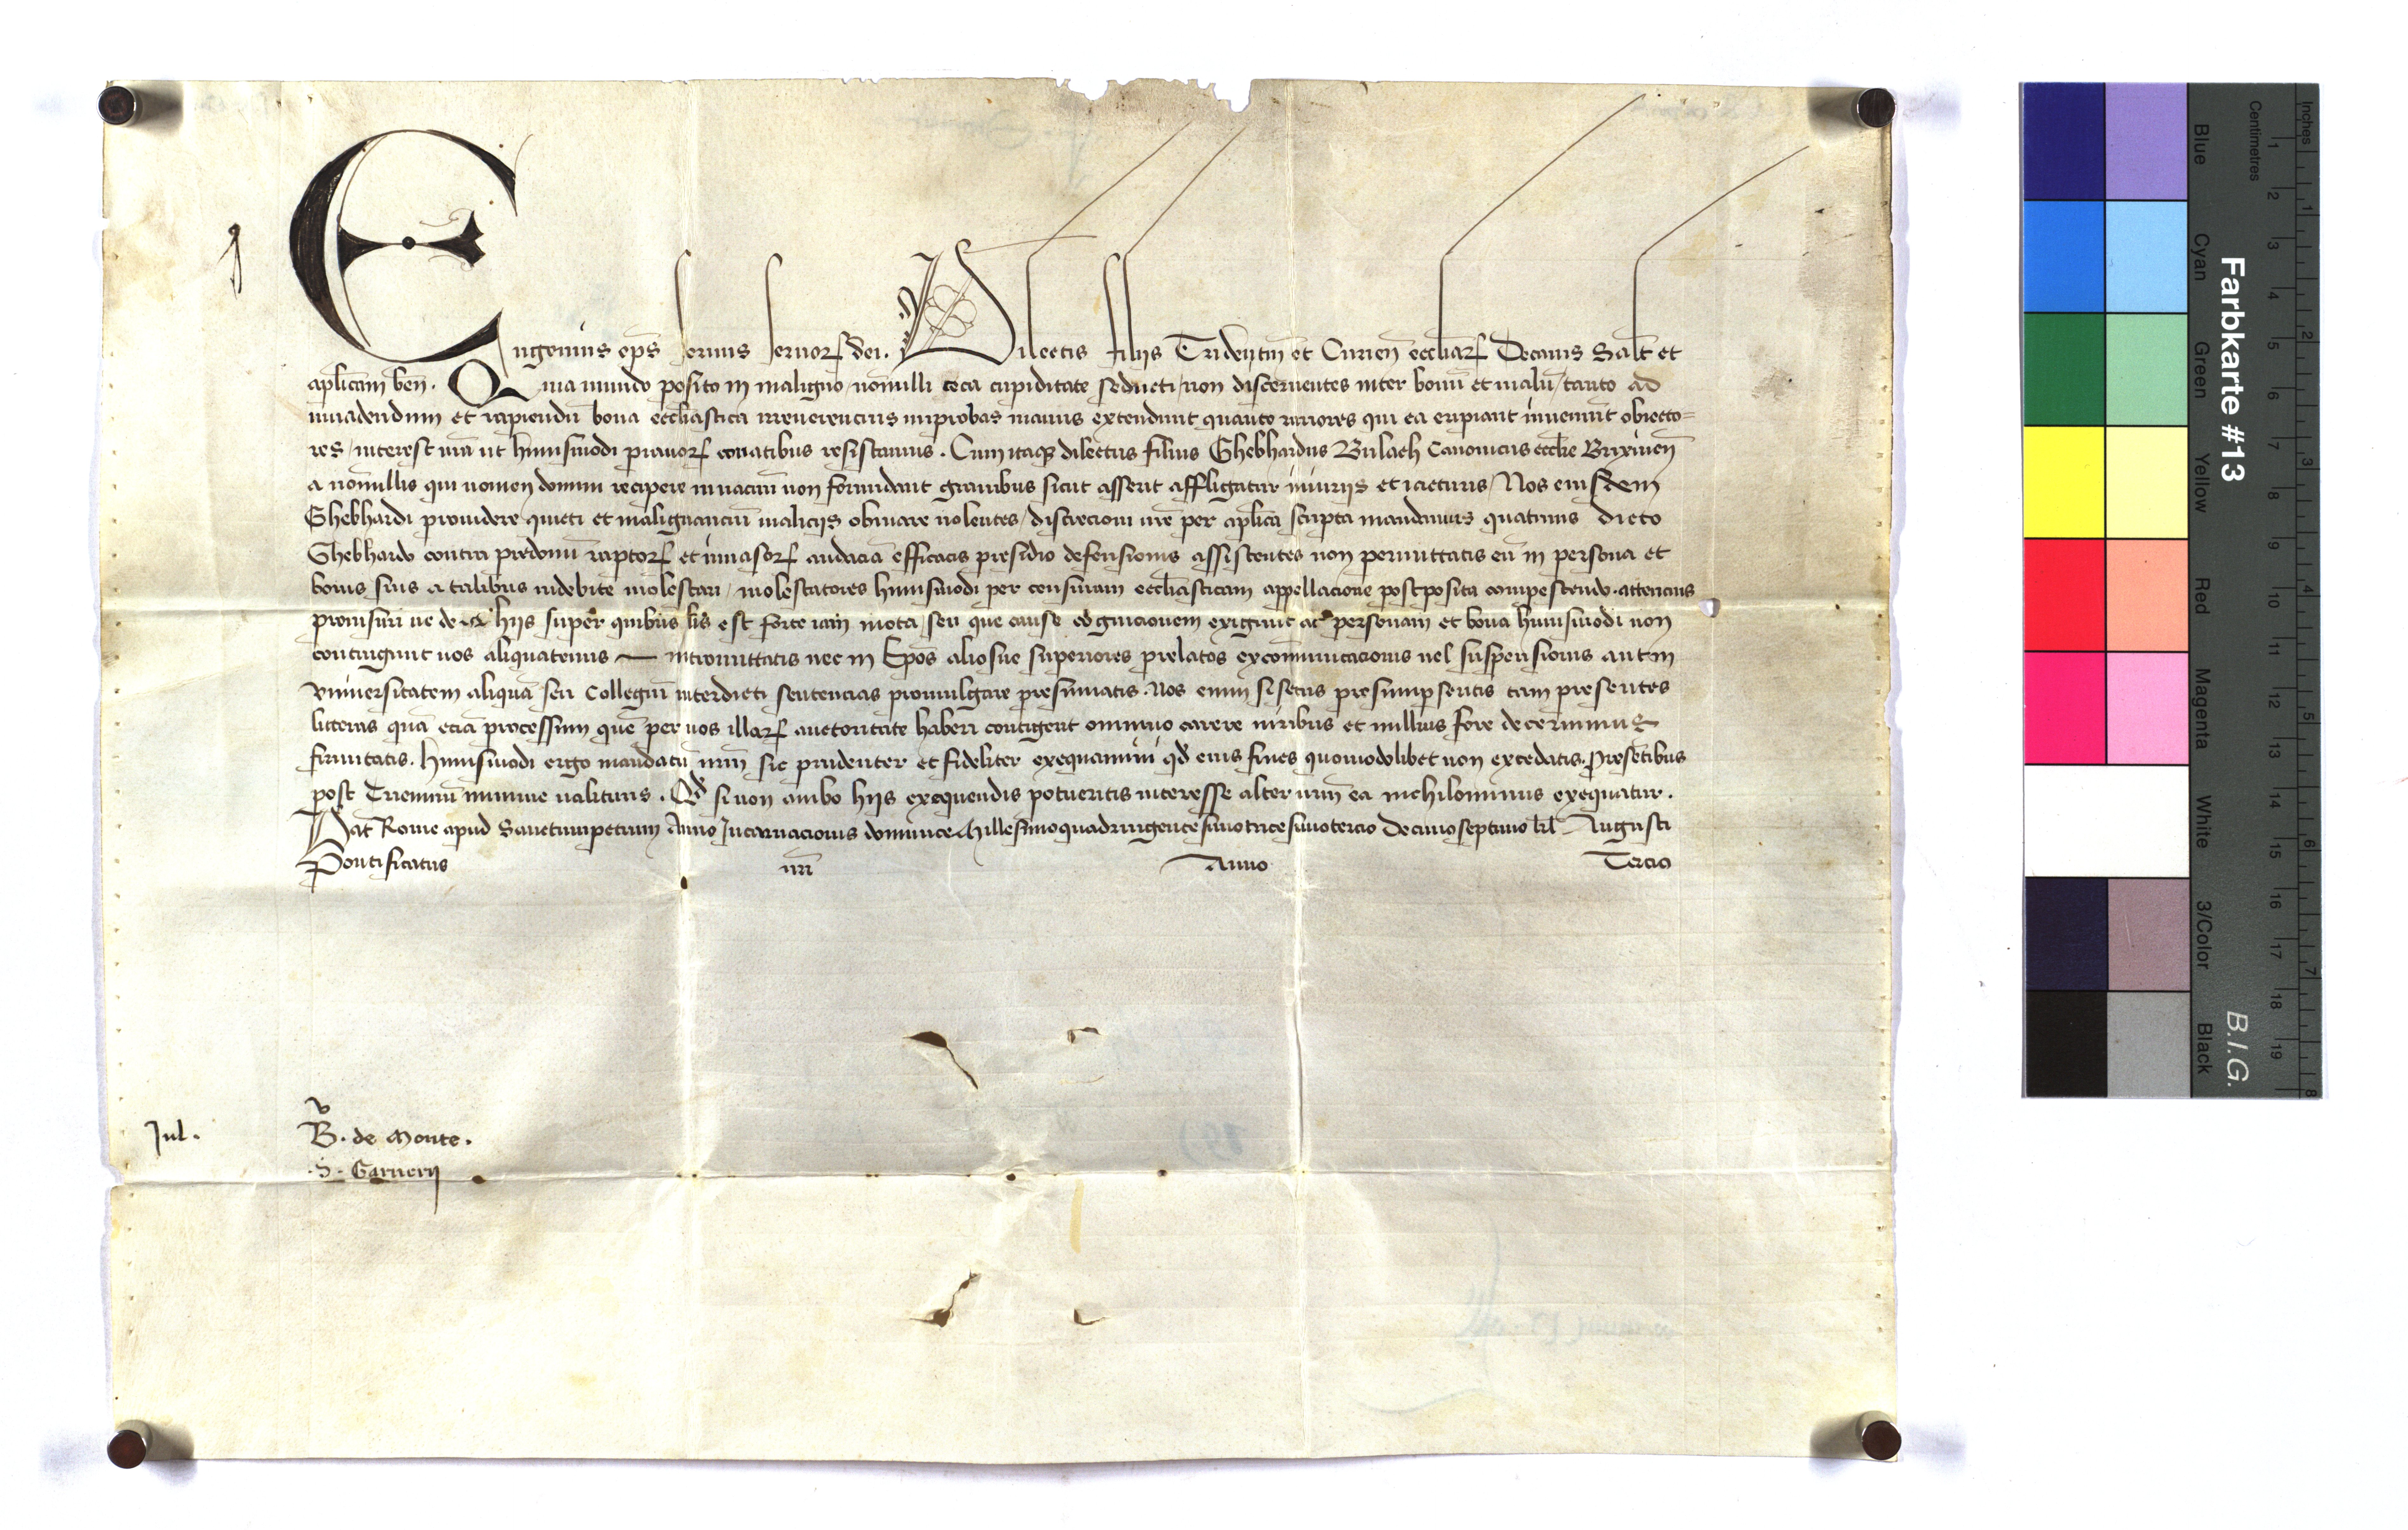 Eugenius ep̄s seruus seruoꝝ dei. Dilectis filijs Tridentin̄ et Curien̄ eccliaꝝ Decanis Salt̄ et
aplicam ben̄. Quia mundo posito in maligno nonnulli ceca cupiditate seducti / non discernentes inter bonū et malū / tanto ad
inuadendum et rapiendū bona ecclīastica irreuerencius improbas manus extendunt quanto rariores qui ea eripiant inueniūt obiecto=
res / interest nr̄a ut huiusmodi prauoꝝ conatibus resistamus. Cum itaqꝫ dilectus filius Ghebhardus Bulach Canonicus eccl̄ie Brixinen̄
a nōnullis qui nomen domini recipere in uacuū non formidant grauibus sicut asserit affligatur iniurijs et iacturis / Nos eiusdem
Ghebhardi prouidere quieti et malignanciū malicijs obuiare uolentes / discrecioni ur̄e per aplīca scripta mandamus quatinus dicto
Ghebhardo contra predonū raptoꝝ et inuasoꝝ audaciā efficacis presidio defensionis assistentes non permittatis eū in persona et
bonis suis a talibus indebite molestari / molestatores huiusmodi per censuram ecclīasticam appellacione postposita compescendo. attencius
prouisuri ne de hijs super quibus lis est forte iam mota / seu que cause cognicionem exigunt ac personam et bona huiusmodi non
contingunt uos aliquatenus intromittatis nec in Epōs aliosue superiores prelatos excōmunicacionis uel suspensionis aut in
vniuersitatem aliquā seu Collegiū interdicti sentencias promulgare presumatis. Nos enim si secus presumpseritis tam presentes
litteras quā eciā processum quē per uos illaꝝ auctoritate haberi contigerit omnino carere uiribus et nullius fore decernimus
firmitatis. Huiusmodi ergo mandatū nr̄m sic prudenter et fideliter exequamini qd̄ eius fines quomodolibet non excedatis. Presētibus
post Trienniū minime ualituris. Qd̄ si non ambo hijs exequendis potueritis interesse alter ur̄m ea nichilominus exequatur.
Dat̄ Rome apud Sanctumpetrum Anno Incarnacionis dominice Millesimoquadringentesimotricesimotercio Decimoseptimo kl̄ Augusti
Pontificatus nr̄i Anno Tercio
Jul.
B. de Monte.
.S. Garnerij
Farbkarte #13
B.I.G.
Inches
Centimetres
1 2 3 4 5 6 7 8 9 10 11 12 13 14 15 16 17 18 19
1 2 3 4 5 6 7 8
Blue
Cyan
Green
Yellow
Red
Magenta
White
3/Color
Black